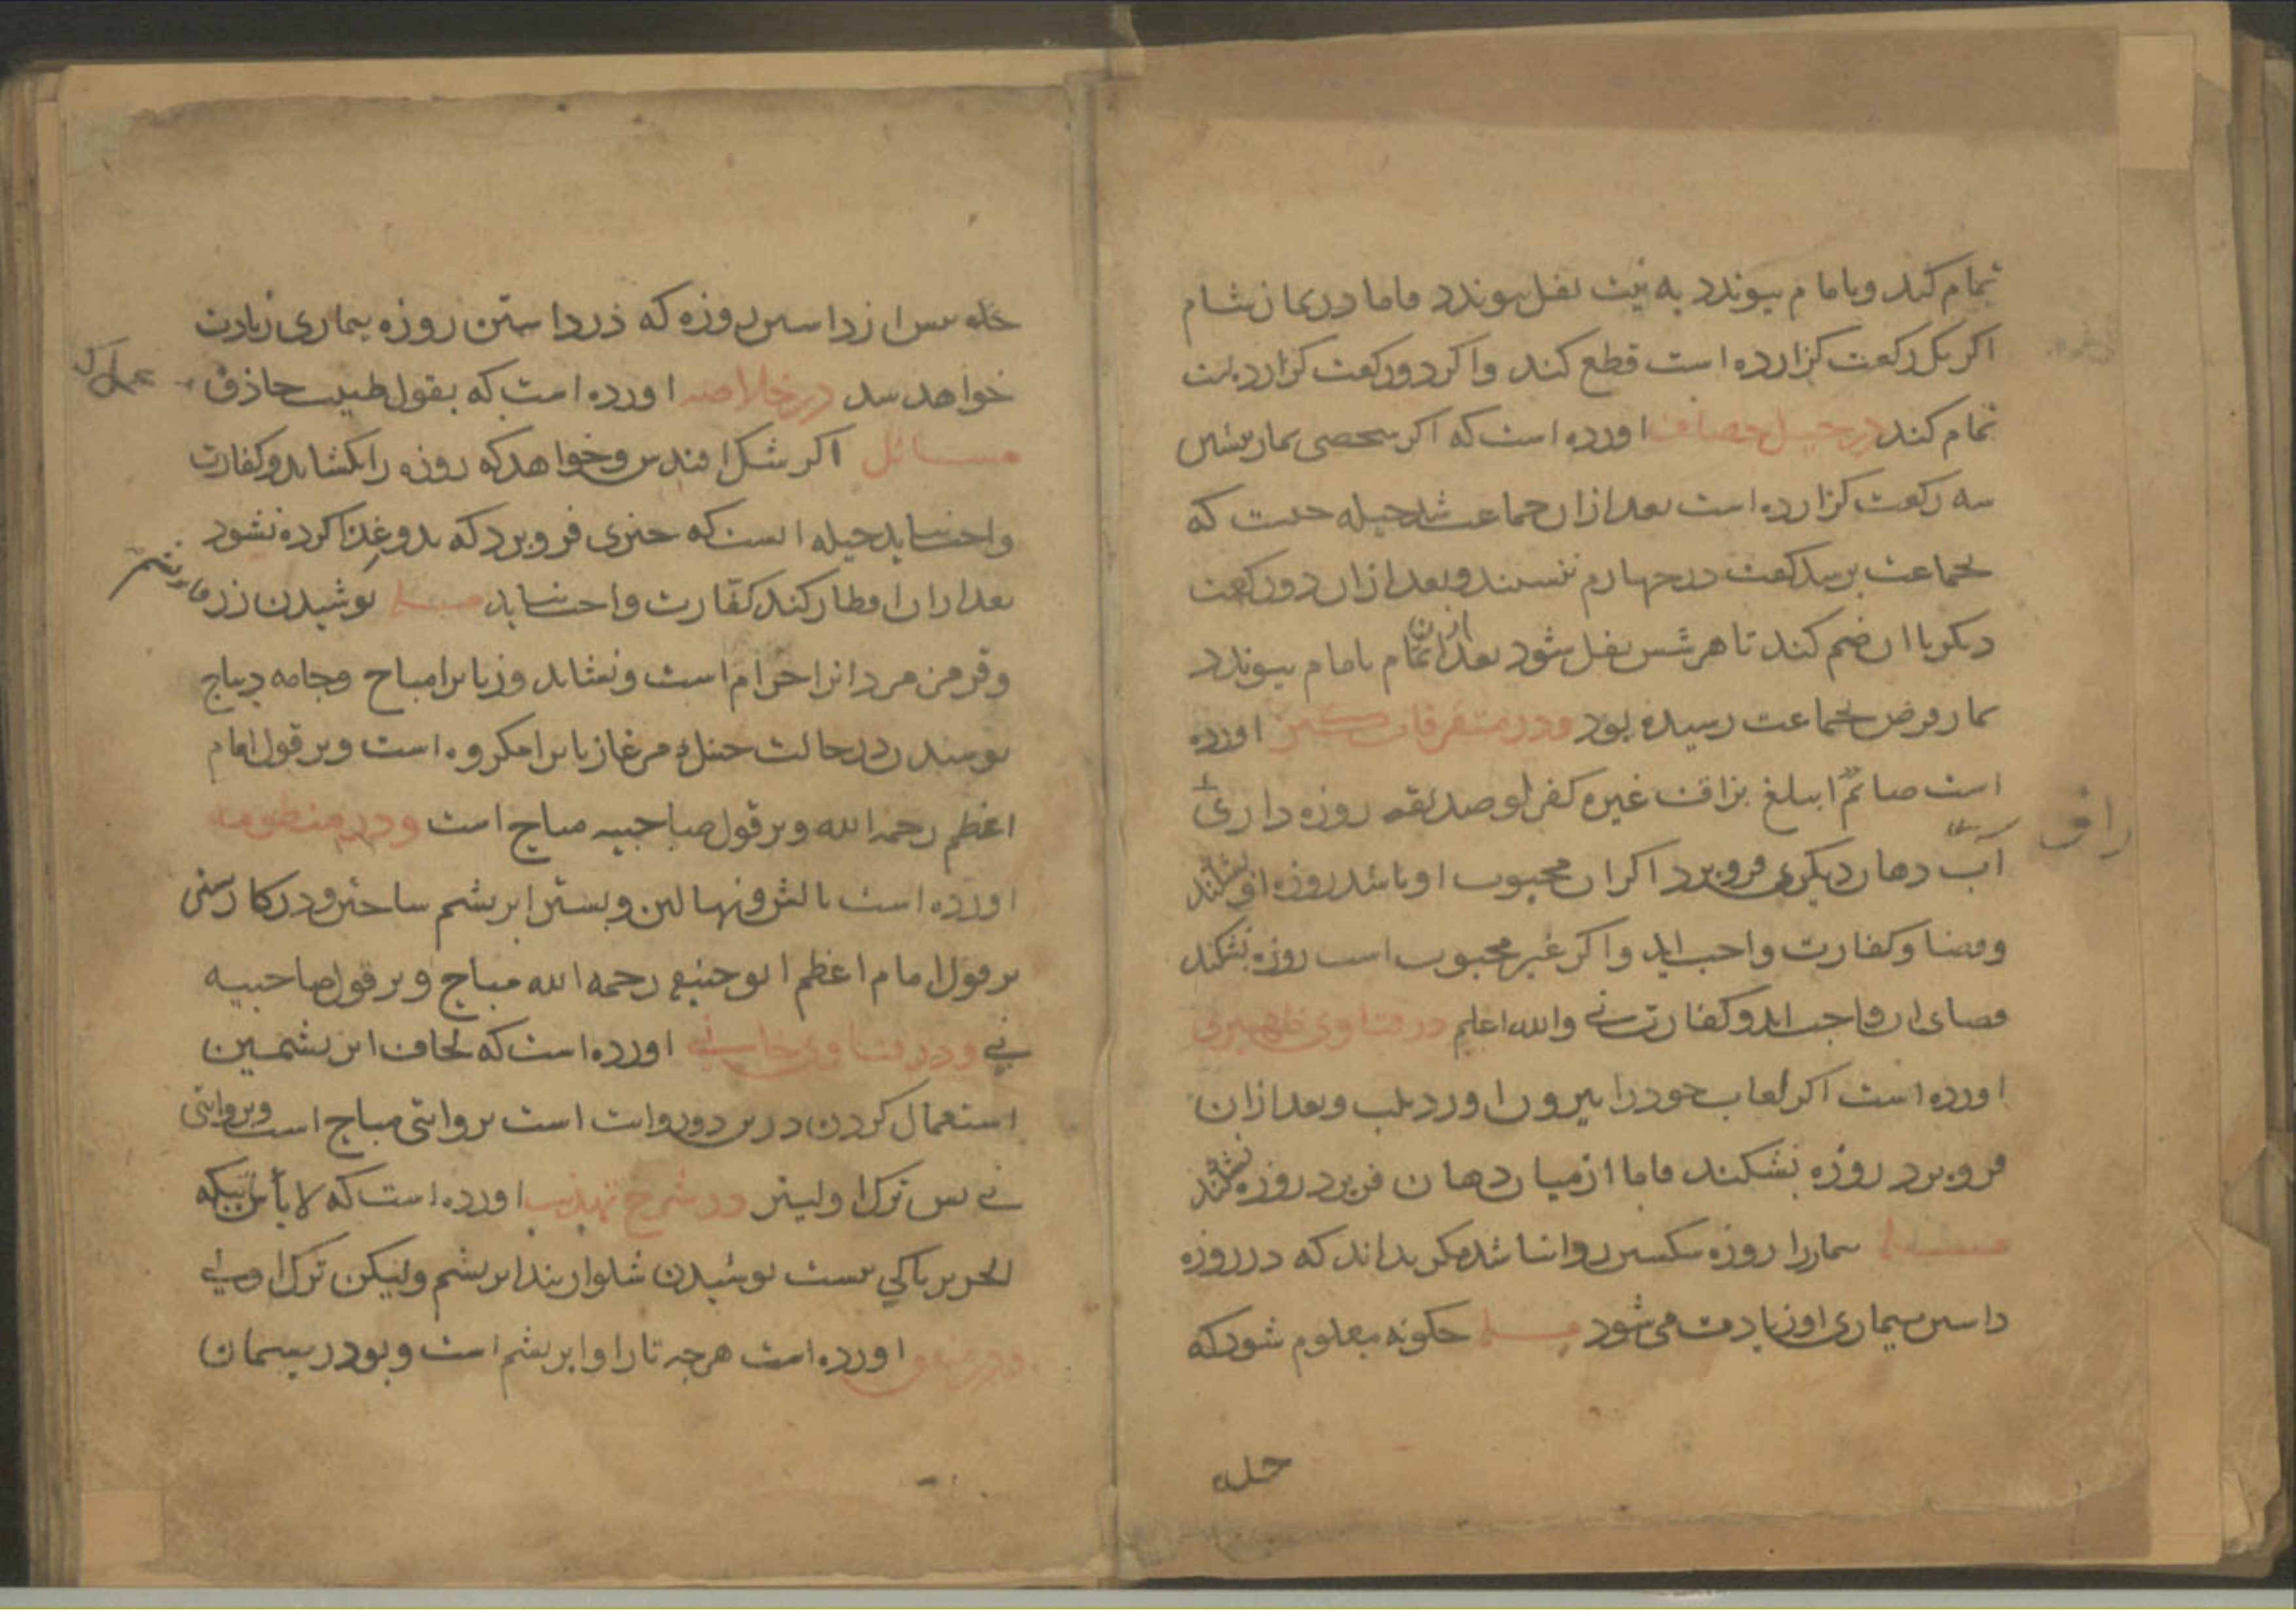 تمام کند و با امام پیوندد به نیت نفل پیوندد فاما در نماز شام
اکر یک رکعت کزارده است قطع کند و اکر دو رکعت کزارده است
تمام کند در حیل خصاف اورده است که اکر شخصی نماز پیشین
سه رکعت کزارده است بعد ازان جماعت شد حیله چیست که
بجماعت برسد کفت در چهارم ننشیند و بعد ازان دو رکعت
دیکر با ان ضم کند تا هر شش نفل شود بعد ازان تمام با امام پیوندد
نماز فرض بجماعت رسیده بود و در متفرقات کنز اورده
است صائم ابتلع بزاق غیره کفر لو صدیقه روزه داری
آب دهان دیکری فرو برد اکر ان محبوب او باشد روزه او بشکند
وقضا و کفارت واجب اید و اکر غیر محبوب است روزه بشکند
قضای ان واجب اید و کفارت نی والله اعلم در فتاوی ظهیری
اورده است اکر لعاب خود را بیرون اورد بلب و بعد ازان
فرو برد روزه بشکند فاما از میان دهان فرو برد روزه نشکند
مسئله بیمار را روزه شکستن روا نباشد مکر بداند که در روزه
داشتن بیماری او زیادت می شود مسئله چکونه معلوم شود که
حله
راق
حله پیش از داشتن روزه که در داشتن روزه بیماری زیادت
خواهد شد در خلاصه اورده است که بقول طبیب حاذق
مسائل اکر شک افتد و خواهد که روزه را بکشاید و کفارت
واجب نیاید حیله انست که چیزی فرو برد که بدو غذا کرده نشود
بعد ازان افطار کند کفارت واجب نیاید مسئله پوشیدن زر و ابریشم
و قرمز مردانرا حرام است و نشاید و زنانرا مباح و جامه دیباج
پوشیدن در حالت جنک مر غازیانرا مکروه است و بر قول امام
اعظم رحمه الله و بر قول صاحبیه مباح است و در منظومه
اورده است بالش و نهالین و بستر ابریشم ساختن و در کار
بر قول امام اعظم ابو حنیفه رحمه الله مباح و بر قول صاحبیه
نی و در فتاوی خانی اورده است که لحاف ابریشمین
استعمال کردن درین دو روایت است بروایتی مباح است و بروایتی
نی پس ترک اولیتر در شرح تهذیب اورده است که لا باس بتکه
الحریر باکی نیست پوشیدن شلوار بند ابریشم ولیکن ترک اولی
اورده است هرچه تار او ابریشم است و پود ریسمان